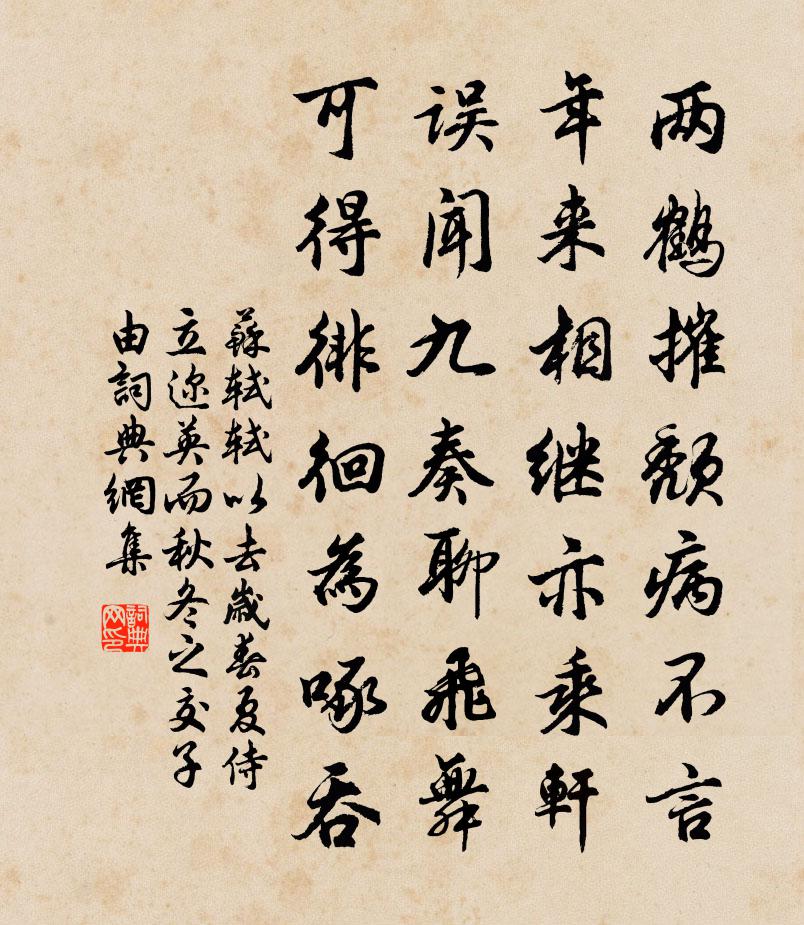 两鹤摧颓病不言
年来相继亦乘軒
误闻九奏聊飛舞
可得徘徊為啄吞
蘇轼轼以去歲春夏侍
立迩英而秋冬之交子
由詞典網集
詞典网印